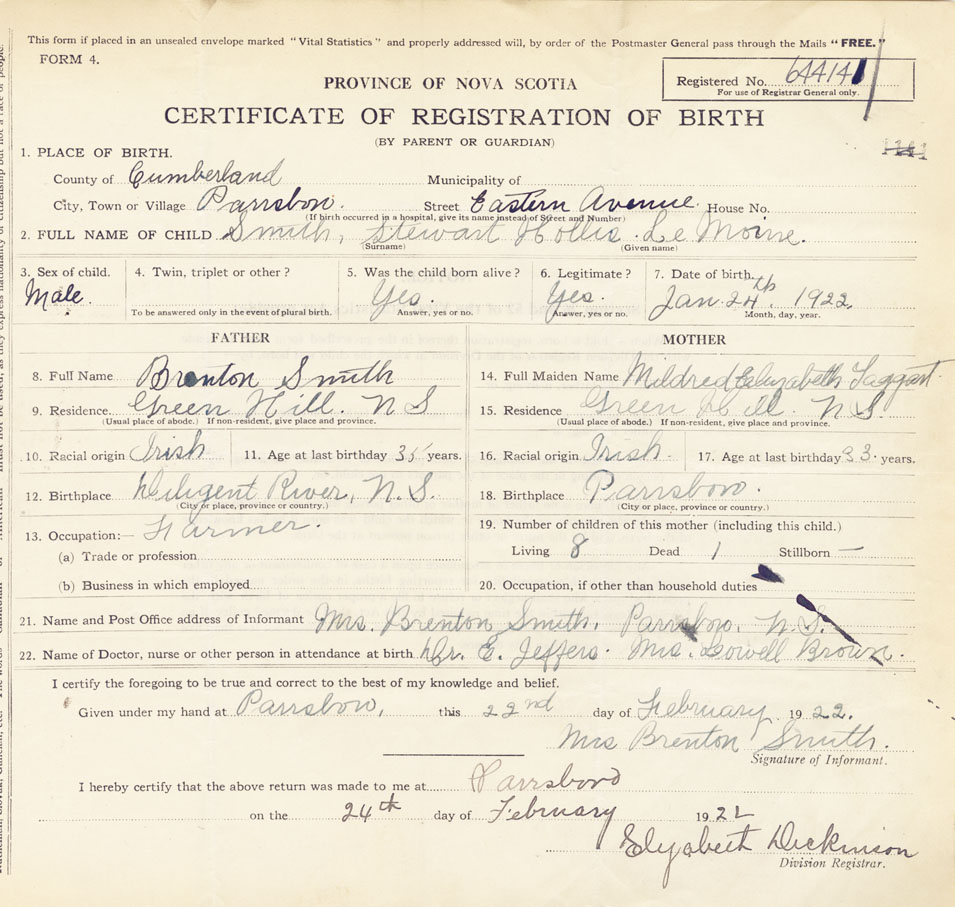 This form if placed in an unsealed envelope marked "Vital Statistics" and properly addressed will, by order of the Postmaster General pass through the Mails "FREE."
FORM 4.
Registered No. 644141
For use of Registrar General only.
PROVINCE OF NOVA SCOTIA
CERTIFICATE OF REGISTRATION OF BIRTH
(BY PARENT OR GUARDIAN)
1. PLACE OF BIRTH.
County of Cumberland Municipality of
City, Town or Village Parrsboro. Street Eastern Avenue. House No.
(If birth occurred in a hospital, give its name instead of Street and Number)
2. FULL NAME OF CHILD Smith, Stewart Hollis Le Moine.
(Surname) (Given name)
3. Sex of child. 4. Twin, triplet or other? 5. Was the child born alive? 6. Legitimate? 7. Date of birth.
Male. Yes. Yes. Jan. 24th. 1922
To be answered only in the event of plural birth. Answer, yes or no. Answer, yes or no. Month, day, year.
FATHER MOTHER
8. Full Name Brenton Smith 14. Full Maiden Name Mildred Elizabeth Taggart
9. Residence. Green Hill. N S 15. Residence Green Hill. N S.
(Usual place of abode.) If non-resident, give place and province. (Usual place of abode.) If non-resident, give place and province.
10. Racial origin Irish 11. Age at last birthday 35 years. 16. Racial origin Irish. 17. Age at last birthday 33. years.
12. Birthplace Diligent River, N. S. 18. Birthplace Parrsboro.
(City or place, province or country.) (City or place, province or country.)
13. Occupation:— Farmer. 19. Number of children of this mother (including this child.)
(a) Trade or profession Living 8 Dead 1 Stillborn —
(b) Business in which employed 20. Occupation, if other than household duties
21. Name and Post Office address of Informant Mrs. Brenton Smith. Parrsboro, N. S.
22. Name of Doctor, nurse or other person in attendance at birth Dr. E. Jeffers. Mrs. Lowell Brown.
I certify the foregoing to be true and correct to the best of my knowledge and belief.
Given under my hand at Parrsboro, this 22nd day of February 1922.
Mrs Brenton Smith.
Signature of Informant.
I hereby certify that the above return was made to me at Parrsboro
on the 24th day of February 1922
Elizabeth Dickinson
Division Registrar.